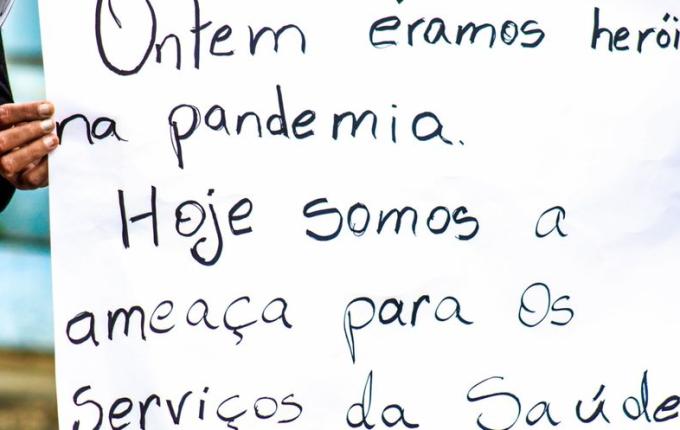 Ontem éramos herói
na pandemia.
Hoje somos a
ameaça para os
Serviços da Saúde